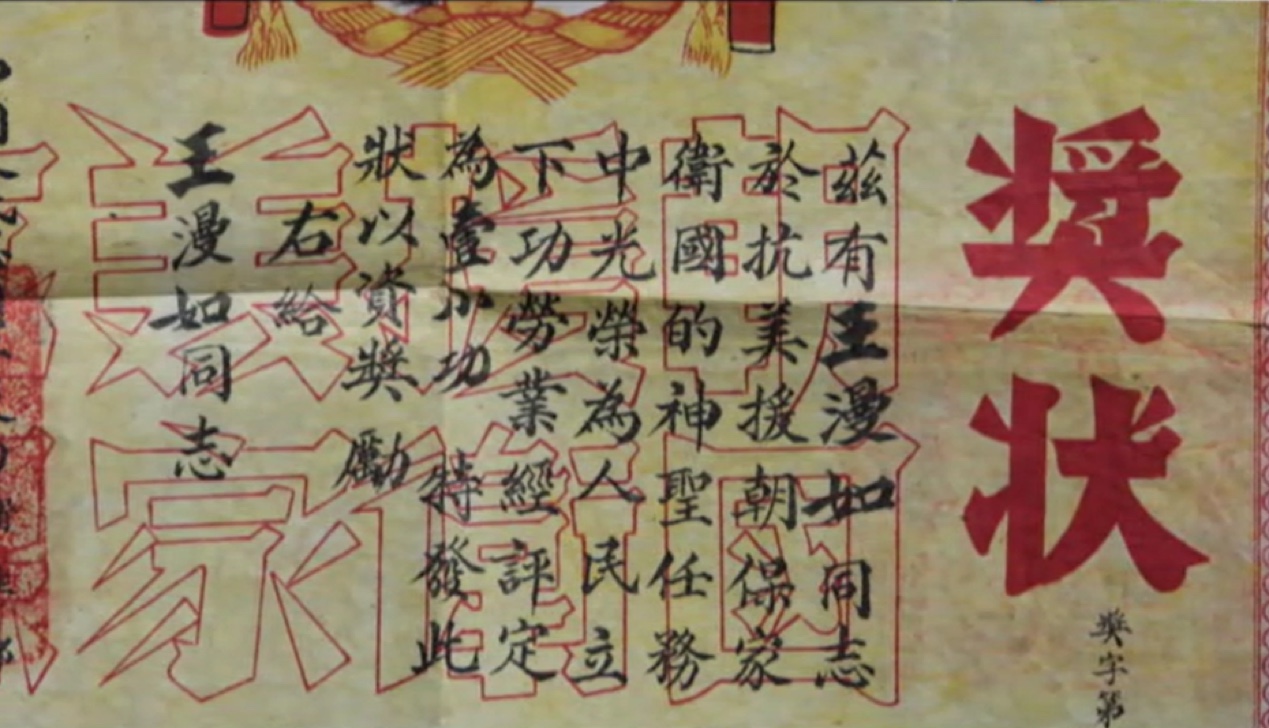 奖状
奖字第
茲有王漫如同志
於抗美援朝保家
衛國的神聖任務
中光榮為人民立
下功勞業經評定
為壹小功 特發此
狀以資獎勵
右給
王漫如同志